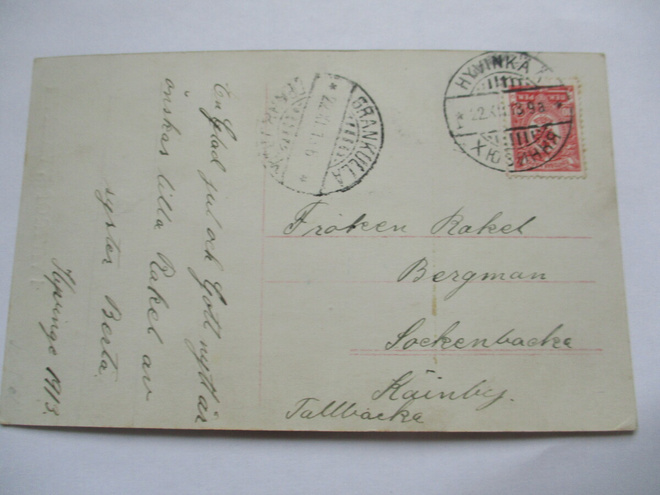 En Glad jul och Gott nytt år
önskas lilla Rakel av
syster Berta.
Hyvinge 1913.
GRANKULLA
HYVINKÄÄ
22.XII.13
ХЮВИНКЯ
Fröken Rakel
Bergman
Sockenbacka
Tallbacka